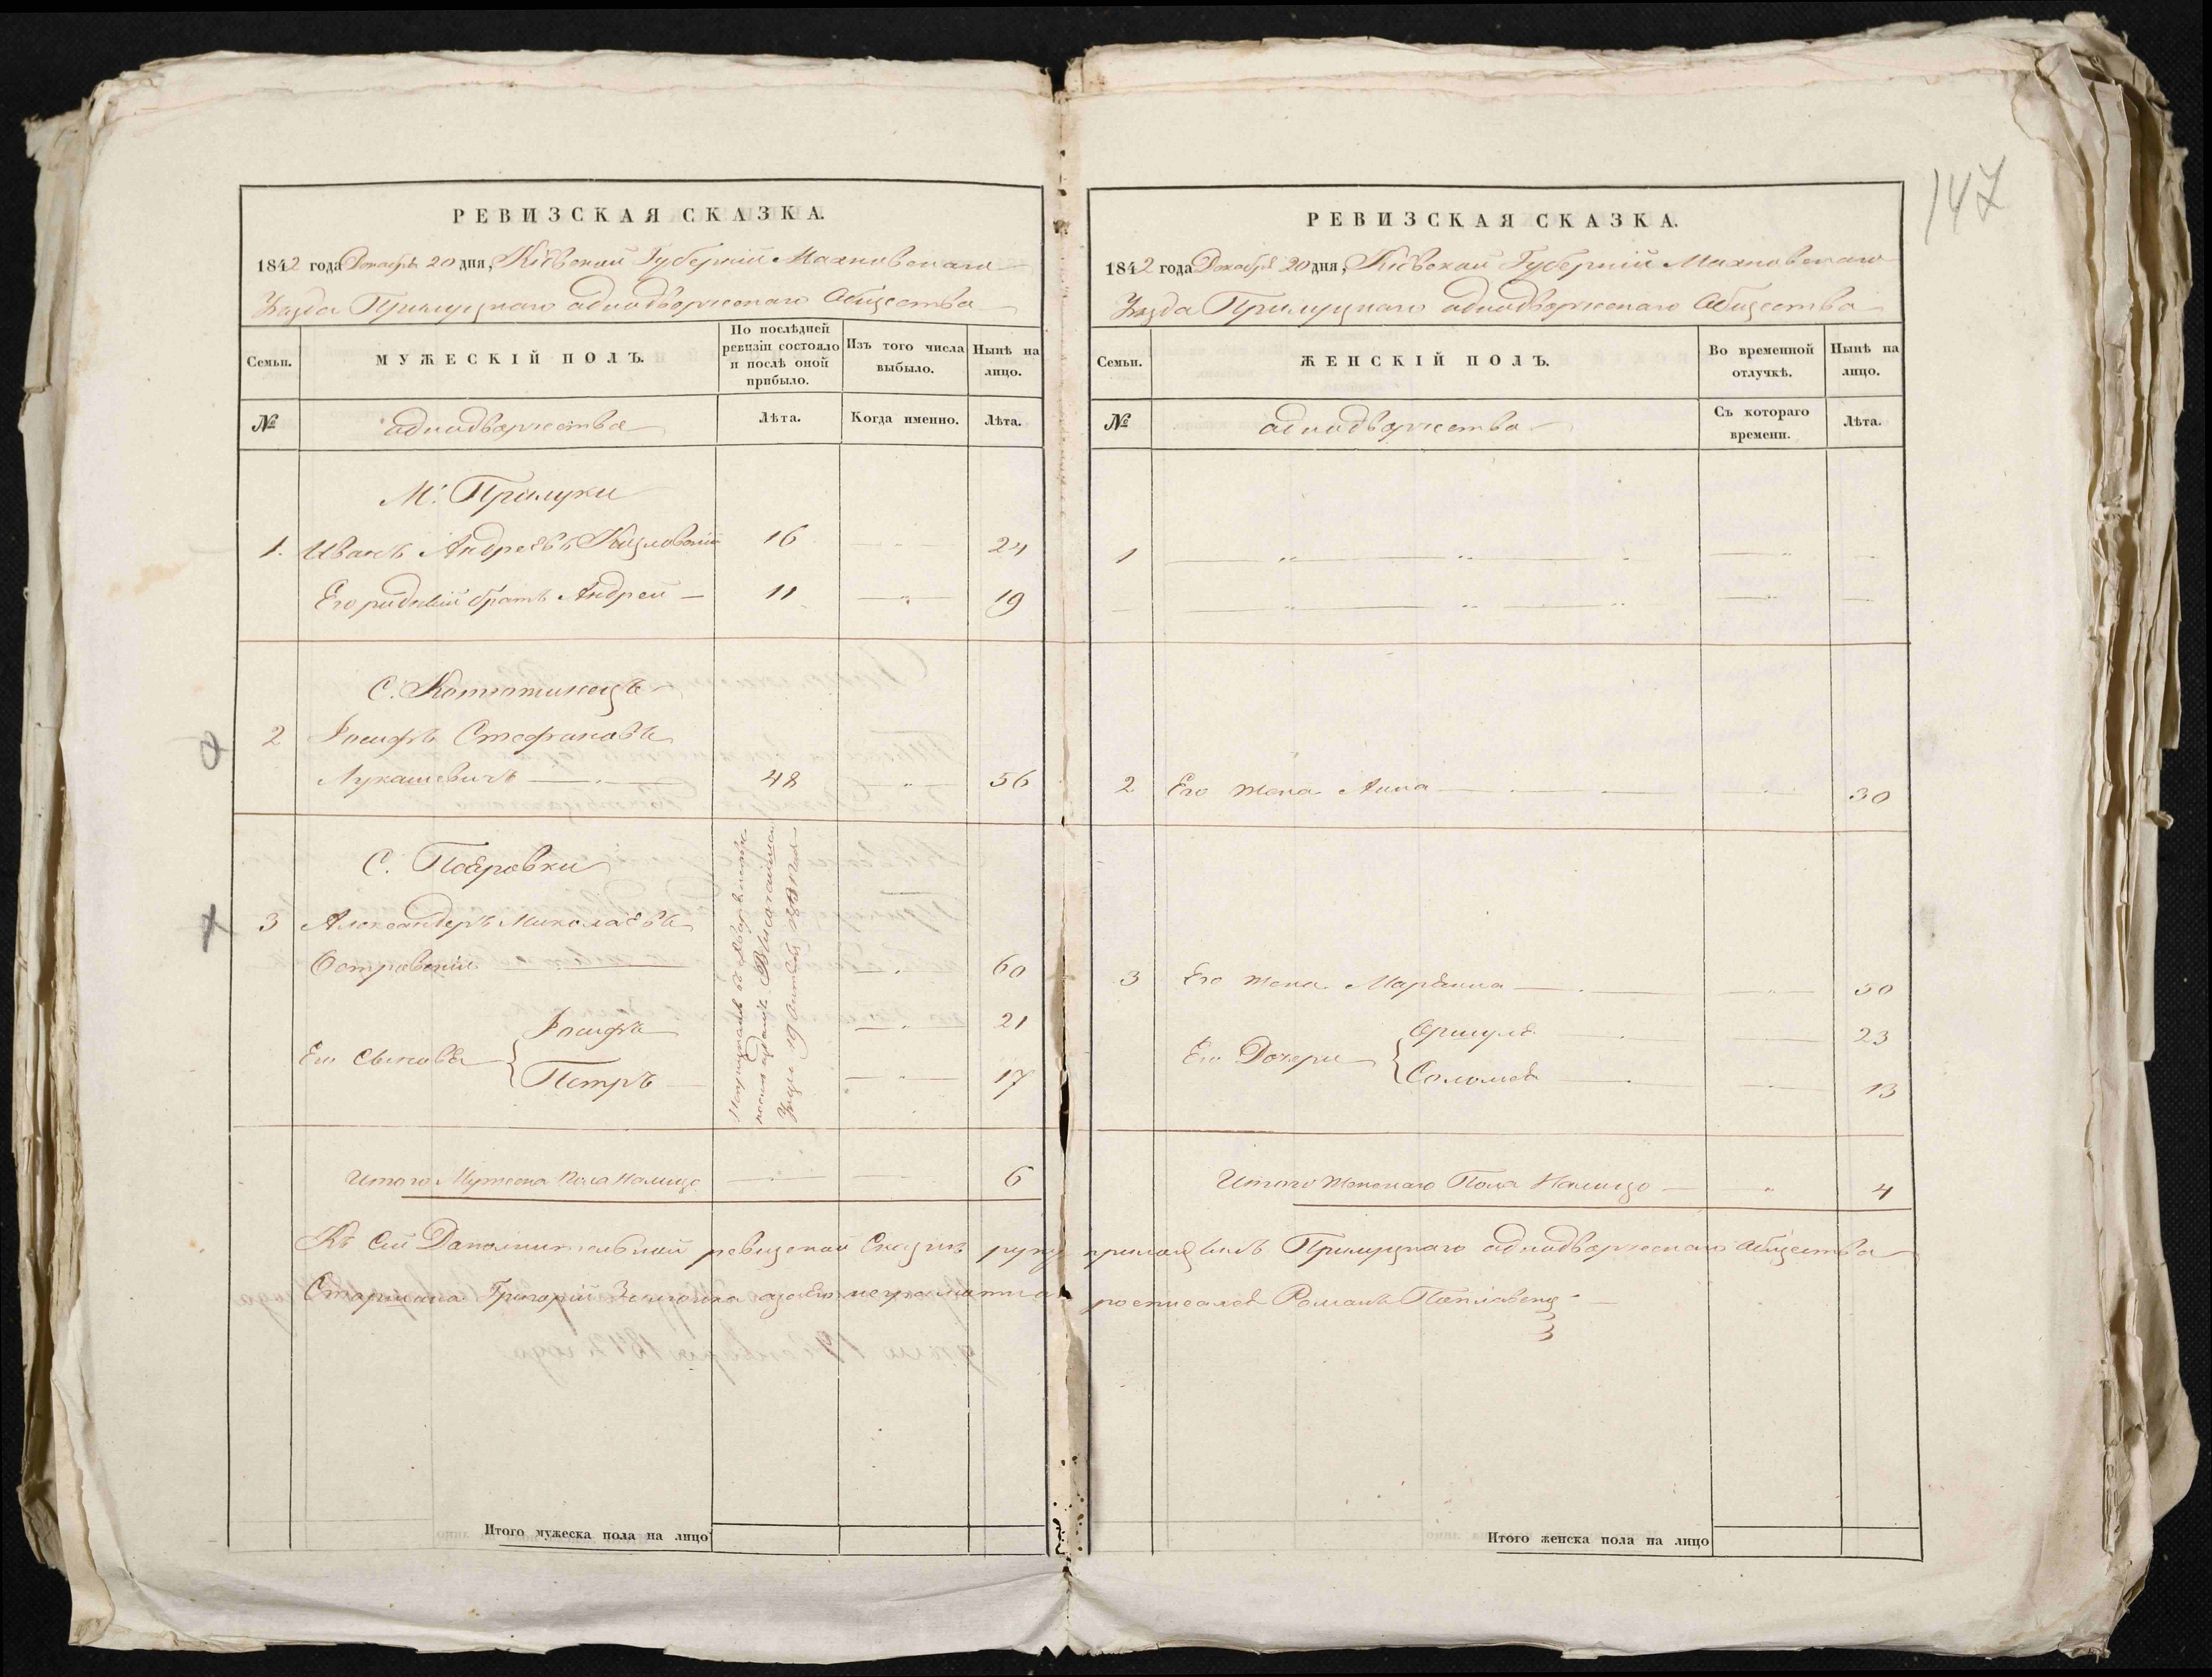 147
РЕВИЗСКАЯ СКАЗКА.
1842 года Декабря 20 дня, Кіевской Губерніи Махновскаго
Уезда Прилуцкаго однодворческаго Общества
Семьи.
МУЖЕСКІЙ ПОЛЪ.
По послѣдней ревизіи состояло и послѣ оной прибыло.
Изъ того числа выбыло.
Нынѣ на лицо.
№
однодворчества
Лѣта.
Когда именно.
Лѣта.
М. Прилуки
1. Иванъ Андреевъ Козловскій 16 24
Его родный братъ Андрей 11 19
С. Констотинецъ
2 Іосифъ Стефановъ
Лукашевичъ 48 56
С. Петровки
3 Александеръ Миколаевъ
Островскій 60
Іосифъ 21
Его Сыновья
Петръ 17
Итого Мужеска Пола Налицо 6
Итого мужеска пола на лицо
РЕВИЗСКАЯ СКАЗКА.
1842 года Декабря 20 дня, Кіевской Губерніи Махновскаго
Уезда Прилуцкаго однодворческаго Общества
Семьи.
ЖЕНСКІЙ ПОЛЪ.
Во временной отлучкѣ.
Нынѣ на лицо.
№
однодворчества
Съ котораго времени.
Лѣта.
1
2 Его жена Анна 30
3 Его жена Маріянна 50
Оршуля 23
Его Дочери
Соломея 13
Итого Женскаго Пола Налицо 4
Къ Сей Дополнительной ревизской Сказки руку приложилъ Прилуцкаго однодворческаго Общества
Старшина Григорій за его неграмотна росписался Романъ
Итого женска пола на лицо